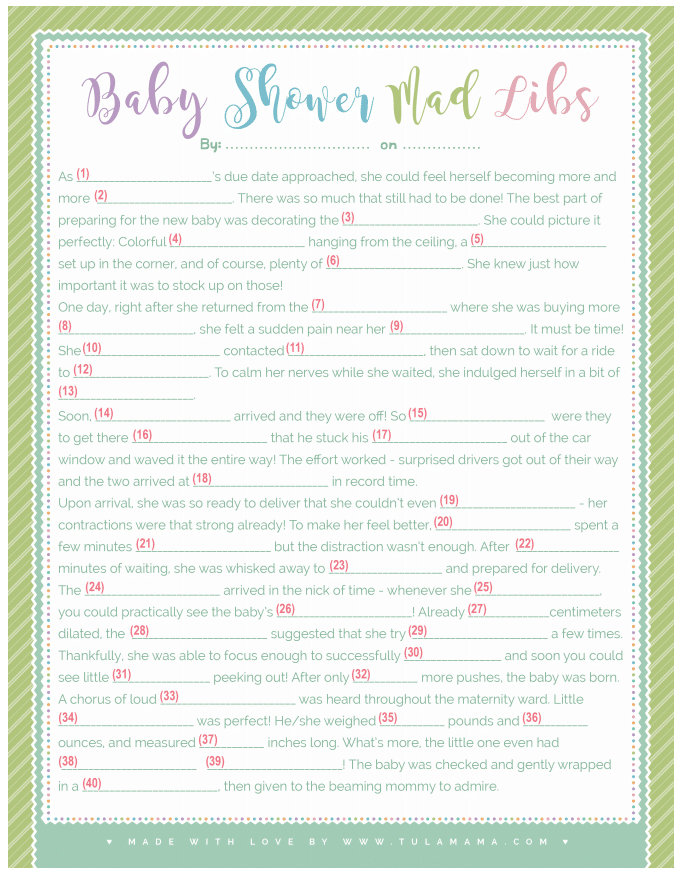 Baby Shower Mad Libs
By: .............................. on ................
As (1)____________________'s due date approached, she could feel herself becoming more and
more (2)____________________. There was so much that still had to be done! The best part of
preparing for the new baby was decorating the (3)____________________. She could picture it
perfectly: Colorful (4)____________________ hanging from the ceiling, a (5)____________________
set up in the corner, and of course, plenty of (6)____________________. She knew just how
important it was to stock up on those!
One day, right after she returned from the (7)____________________ where she was buying more
(8)____________________, she felt a sudden pain near her (9)____________________. It must be time!
She (10)____________________ contacted (11)____________________, then sat down to wait for a ride
to (12)____________________. To calm her nerves while she waited, she indulged herself in a bit of
(13)____________________.
Soon, (14)____________________ arrived and they were off! So (15)____________________ were they
to get there (16)____________________ that he stuck his (17)____________________ out of the car
window and waved it the entire way! The effort worked - surprised drivers got out of their way
and the two arrived at (18)____________________ in record time.
Upon arrival, she was so ready to deliver that she couldn't even (19)____________________ - her
contractions were that strong already! To make her feel better, (20)____________________ spent a
few minutes (21)____________________ but the distraction wasn't enough. After (22)_______________
minutes of waiting, she was whisked away to (23)________________ and prepared for delivery.
The (24)____________________ arrived in the nick of time - whenever she (25)__________________,
you could practically see the baby's (26)____________________! Already (27)____________centimeters
dilated, the (28)____________________ suggested that she try (29)____________________ a few times.
Thankfully, she was able to focus enough to successfully (30)______________ and soon you could
see little (31)______________ peeking out! After only (32)__________ more pushes, the baby was born.
A chorus of loud (33)____________________ was heard throughout the maternity ward. Little
(34)____________________ was perfect! He/she weighed (35)__________ pounds and (36)__________
ounces, and measured (37)__________ inches long. What's more, the little one even had
(38)____________________ (39)____________________! The baby was checked and gently wrapped
in a (40)____________________, then given to the beaming mommy to admire.
♥ MADE WITH LOVE BY WWW.TULAMAMA.COM ♥